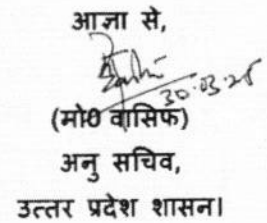 आज्ञा से,
30.03.26
(मो0 वासिफ)
अनु सचिव,
उत्तर प्रदेश शासन।